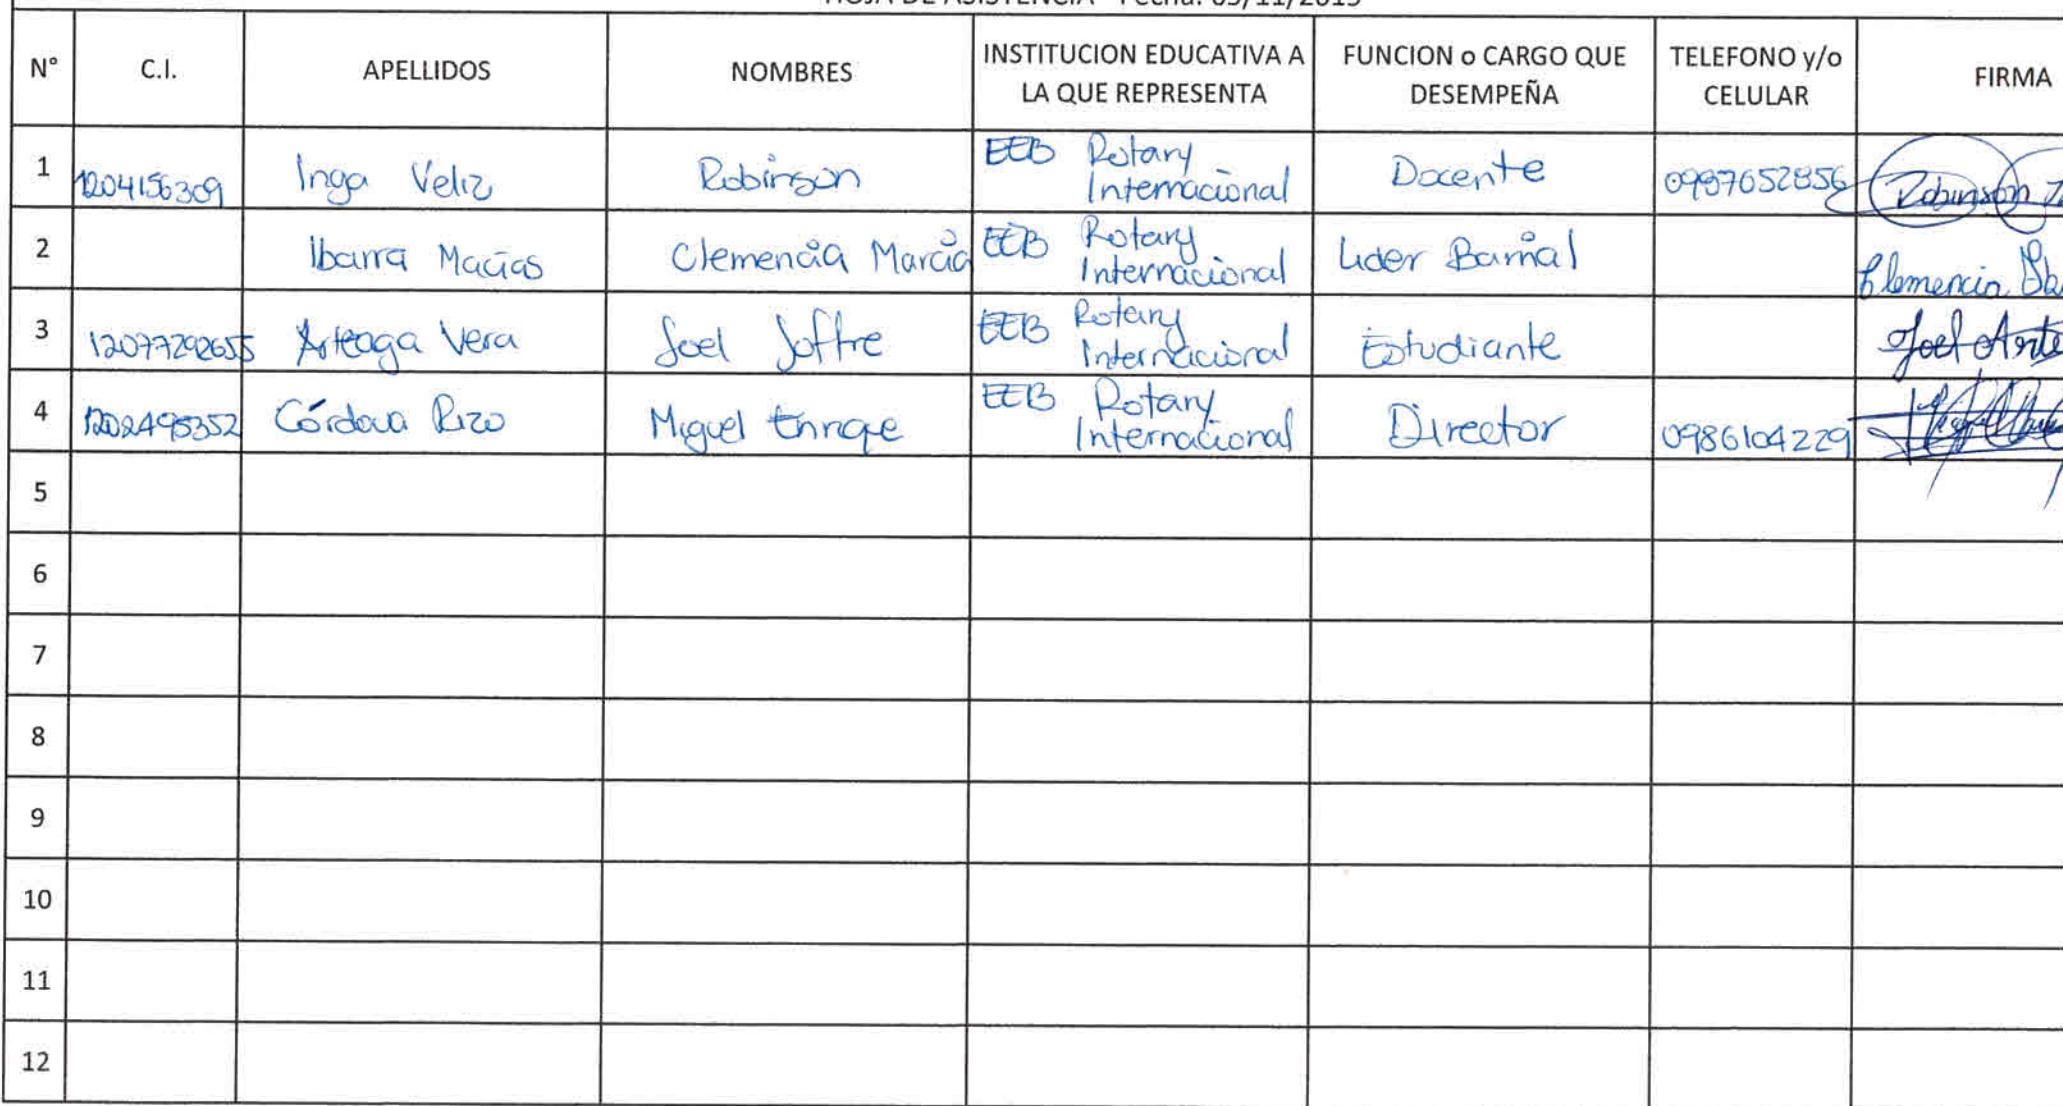 HOJA DE ASISTENCIA - Fecha: 05/11/2015
N° C.I. APELLIDOS NOMBRES INSTITUCION EDUCATIVA A LA QUE REPRESENTA FUNCION o CARGO QUE DESEMPEÑA TELEFONO y/o CELULAR FIRMA
1 1204156309 Inga Veliz Robinson EEB Rotary Internacional Docente 0987652856 Robinson
2 Ibarra Macías Clemencia Marcia EEB Rotary Internacional Lider Barrial Clemencia
3 12077292655 Arteaga Vera Joel Joffre EEB Rotary Internacional Estudiante Joel Arte
4 1202495352 Córdova Rizo Miguel Enrique EEB Rotary Internacional Director 0986104229
5
6
7
8
9
10
11
12